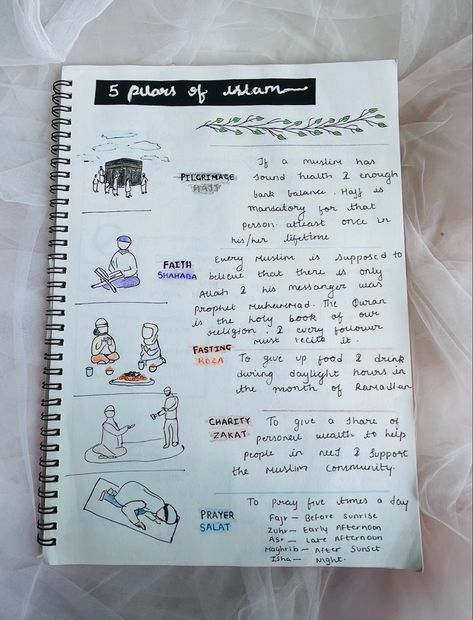 5 Pillars of islam
PILGRIMAGE
HAJJ
If a muslim has
sound health & enough
bank balance. Hajj is
mandatory for that
person atleast once in
his/her lifetime
FAITH
SHAHADA
Every Muslim is supposed to
believe that there is only
Allah & his messanger was
Prophet Muhammad. The Quran
is the holy book of our
religion. & every follower
must recite it.
FASTING
ROZA
To give up food & drink
during daylight hours in
the month of Ramadan
CHARITY
ZAKAT
To give a share of
personal wealth to help
people in need & support
the Muslim community.
PRAYER
SALAT
To pray five times a day
Fajr – Before sunrise
Zuhr – Early Afternoon
Asr – Late Afternoon
Maghrib – After Sunset
Isha – Night.